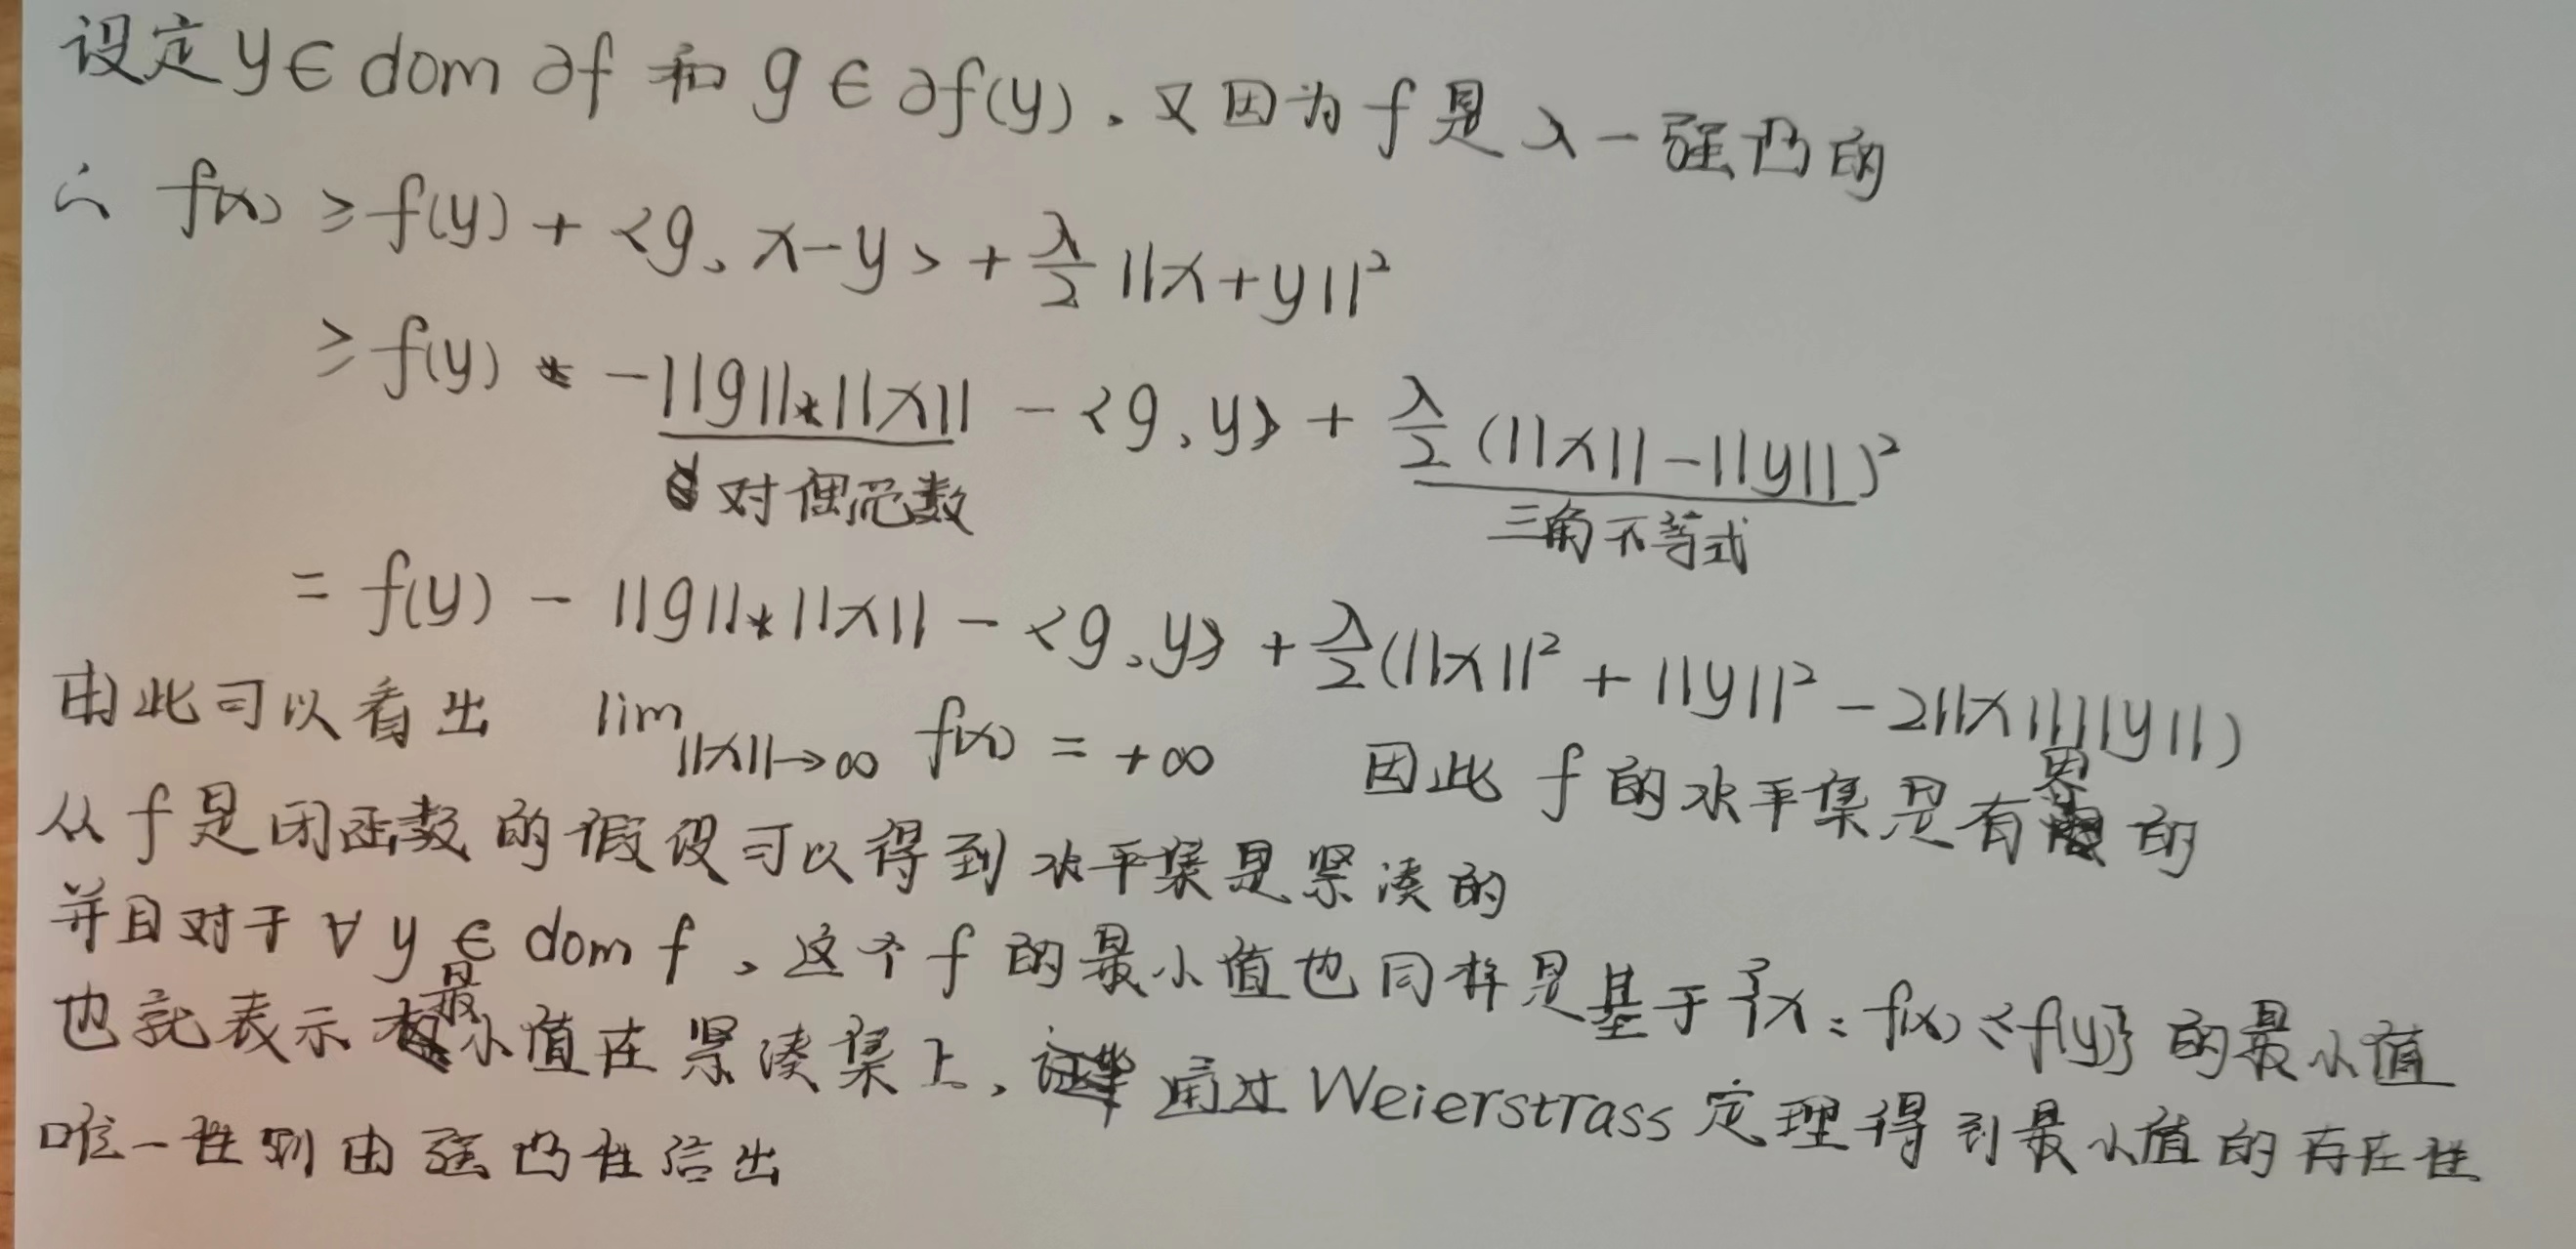 设定 y ∈ dom ∂f 和 g ∈ ∂f(y), 又因为 f 是 λ-强凸的
∴ f(x) ≥ f(y) + <g, x-y> + λ/2 ||x+y||²
≥ f(y) - ||g||⁎||x|| - <g, y> + λ/2 (||x|| - ||y||)²
对偶范数 三角不等式
= f(y) - ||g||⁎||x|| - <g, y> + λ/2 (||x||² + ||y||² - 2||x||||y||)
由此可以看出 lim ||x||→∞ f(x) = +∞ 因此 f 的水平集是有界的
从 f 是闭函数的假设可以得到水平集是紧凑的
并且对于 ∀ y ∈ dom f, 这个 f 的最小值也同样是基于 {x: f(x) ≤ f(y)} 的最小值
也就表示最小值在紧凑集上, 通过 Weierstrass 定理得到最小值的存在性
唯一性则由强凸性给出